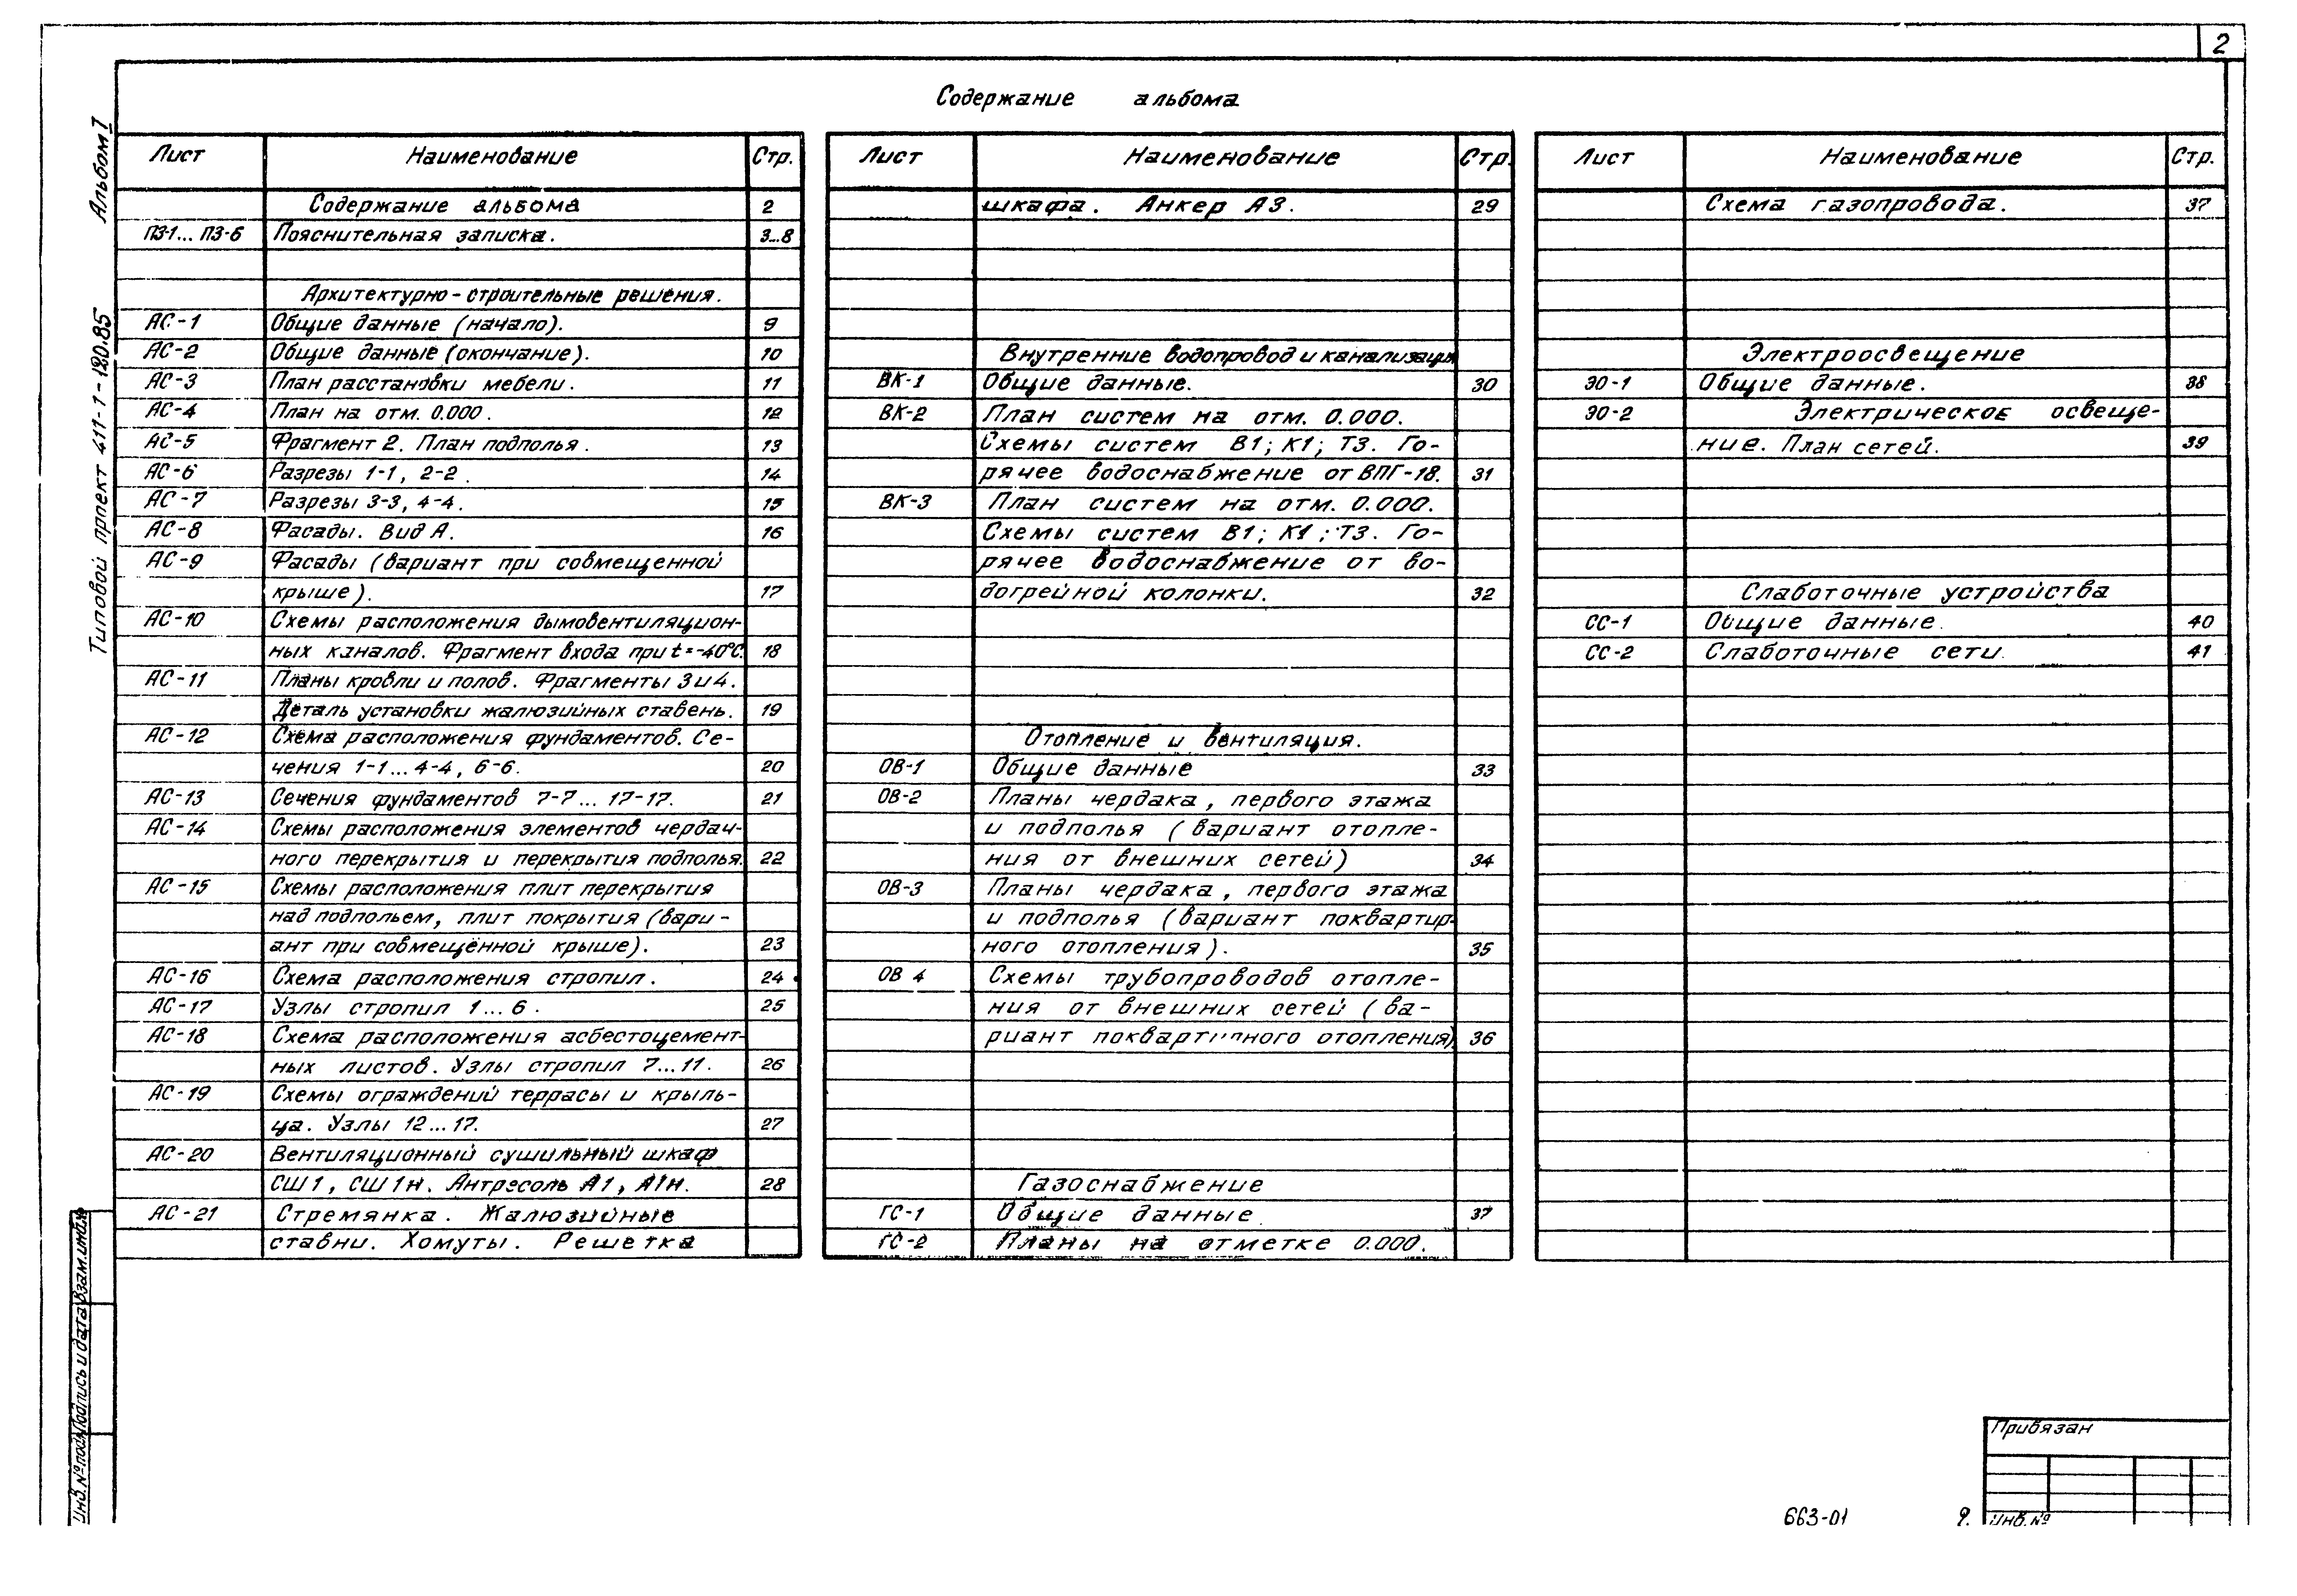 2
Содержание альбома
Альбом I
Типовой проект 411-1-120.85
Лист Наименование Стр.
Содержание альбома 2
ПЗ-1... ПЗ-6 Пояснительная записка. 3...8
Архитектурно-строительные решения.
АС-1 Общие данные (начало). 9
АС-2 Общие данные (окончание). 10
АС-3 План расстановки мебели. 11
АС-4 План на отм. 0.000. 12
АС-5 Фрагмент 2. План подполья. 13
АС-6 Разрезы 1-1, 2-2. 14
АС-7 Разрезы 3-3, 4-4. 15
АС-8 Фасады. Вид А. 16
АС-9 Фасады (вариант при совмещенной
крыше). 17
АС-10 Схемы расположения дымовентиляцион-
ных каналов. Фрагмент входа при t=-40°С. 18
АС-11 Планы кровли и полов. Фрагменты 3 и 4.
Деталь установки жалюзийных ставень. 19
АС-12 Схема расположения фундаментов. Се-
чения 1-1...4-4, 6-6. 20
АС-13 Сечения фундаментов 7-7... 17-17. 21
АС-14 Схемы расположения элементов чердач-
ного перекрытия и перекрытия подполья. 22
АС-15 Схемы расположения плит перекрытия
над подпольем, плит покрытия (вари-
ант при совмещённой крыше). 23
АС-16 Схема расположения стропил. 24
АС-17 Узлы стропил 1...6. 25
АС-18 Схема расположения асбестоцемент-
ных листов. Узлы стропил 7...11. 26
АС-19 Схемы ограждений террасы и крыль-
ца. Узлы 12...17. 27
АС-20 Вентиляционный сушильный шкаф
СШ1, СШ1н. Антресоль А1, А1н. 28
АС-21 Стремянка. Жалюзийные
ставни. Хомуты. Решетка
Лист Наименование Стр.
шкафа. Анкер А3. 29
Внутренние водопровод и канализация
ВК-1 Общие данные. 30
ВК-2 План систем на отм. 0.000.
Схемы систем В1; К1; Т3. Го-
рячее водоснабжение от ВПГ-18. 31
ВК-3 План систем на отм. 0.000.
Схемы систем В1; К1; Т3. Го-
рячее водоснабжение от во-
догрейной колонки. 32
Отопление и вентиляция.
ОВ-1 Общие данные 33
ОВ-2 Планы чердака, первого этажа
и подполья (вариант отопле-
ния от внешних сетей) 34
ОВ-3 Планы чердака, первого этажа
и подполья (вариант поквартир-
ного отопления). 35
ОВ 4 Схемы трубопроводов отопле-
ния от внешних сетей (ва-
риант поквартирного отопления) 36
Газоснабжение
ГС-1 Общие данные. 37
ГС-2 Планы на отметке 0.000.
Лист Наименование Стр.
Схема газопровода. 37
Электроосвещение
ЭО-1 Общие данные. 38
ЭО-2 Электрическое освеще-
ние. План сетей. 39
Слаботочные устройства
СС-1 Общие данные. 40
СС-2 Слаботочные сети. 41
Инв.№подл. Подпись и дата Взам.инв.№
Привязан
Инв.№
663-01 9.